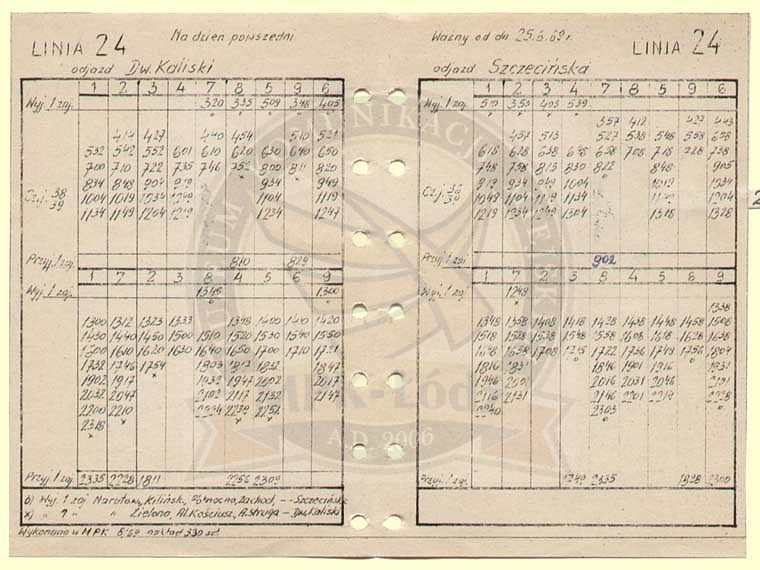 LINIA 24 Na dzień powszedni
odjazd Dw. Kaliski
1 2 3 4 7 8 5 9 6
Wyj. 1 zaj. 320 335 509 348 405
414 427 440 454 510 521
532 542 552 601 610 620 630 640 650
700 710 722 735 746 752 800 811 820
834 848 904 919 934 949
Cz. j. 38 1004 1019 1034 1049 1104 1119
39 1134 1149 1204 1219 1234 1247
Przyj. 1 zaj. 810 829
1 7 2 3 8 4 5 6 9
Wyj. 1 zaj. 1345 1300
1300 1312 1323 1333 1348 1400 1410 1420
1430 1440 1450 1500 1510 1520 1530 1540 1550
1600 1610 1620 1630 1640 1650 1700 1710 1721
1732 1746 1754 1903 1817 1832 1847
1902 1917 1932 1947 2002 2017
2032 2047 2102 2117 2132 2147
2200 2210 2224 2239 2252
2318
Przyj. 1 zaj. 2335 2228 1811 2256 2309
o) Wyj. 1 zaj. Narutow., Kilińsk., Północna, Zachod. - Szczecińska
x) " 1 " " Zielona, Al. Kościusz., A. Struga - Dw. Kaliski
Wykonano w MPK 6/69 nakład 330 szt.
Ważny od dn. 25.6.69 r. LINIA 24
odjazd Szczecińska
1 2 3 4 7 8 5 9 6
Wyj. 1 zaj. 353 405 539
357 412 427 443
457 513 527 538 548 558 608
618 628 638 648 658 708 718 728 738
748 758 813 830 822 848 905
919 934 949 1004 1019 1034
Cz. j. 36 1049 1104 1119 1134 1204
39 1219 1234 1249 1304 1318 1328
Przyj. 1 zaj. 902
1 7 2 3 8 4 5 6 9
Wyj. 1 zaj. 1248
1338
1348 1358 1408 1418 1428 1438 1448 1458 1508
1518 1528 1538 1548 1558 1608 1618 1628 1638
1648 1658 1708 1715 1722 1736 1749 1756 1804
1816 1831 1846 1901 1916 1931
1946 2001 2016 2031 2046 2101
2116 2131 2146 2201 2214 2228
2240 2303
Przyj. 1 zaj. 1749 2335 1828 2300
MPK-Łódź
A.D. 2006